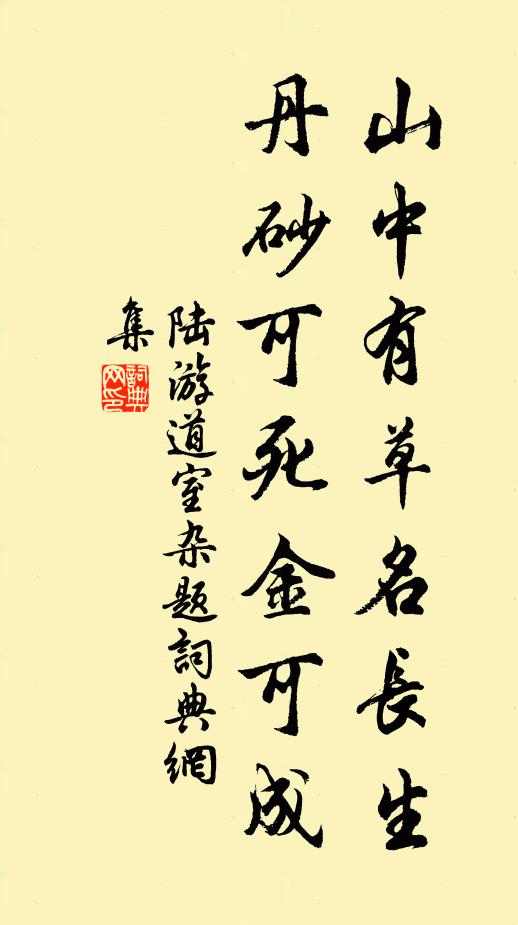 山中有草名長生
丹砂可死金可成
陆游道室杂题詞典網
集
詞典
网印